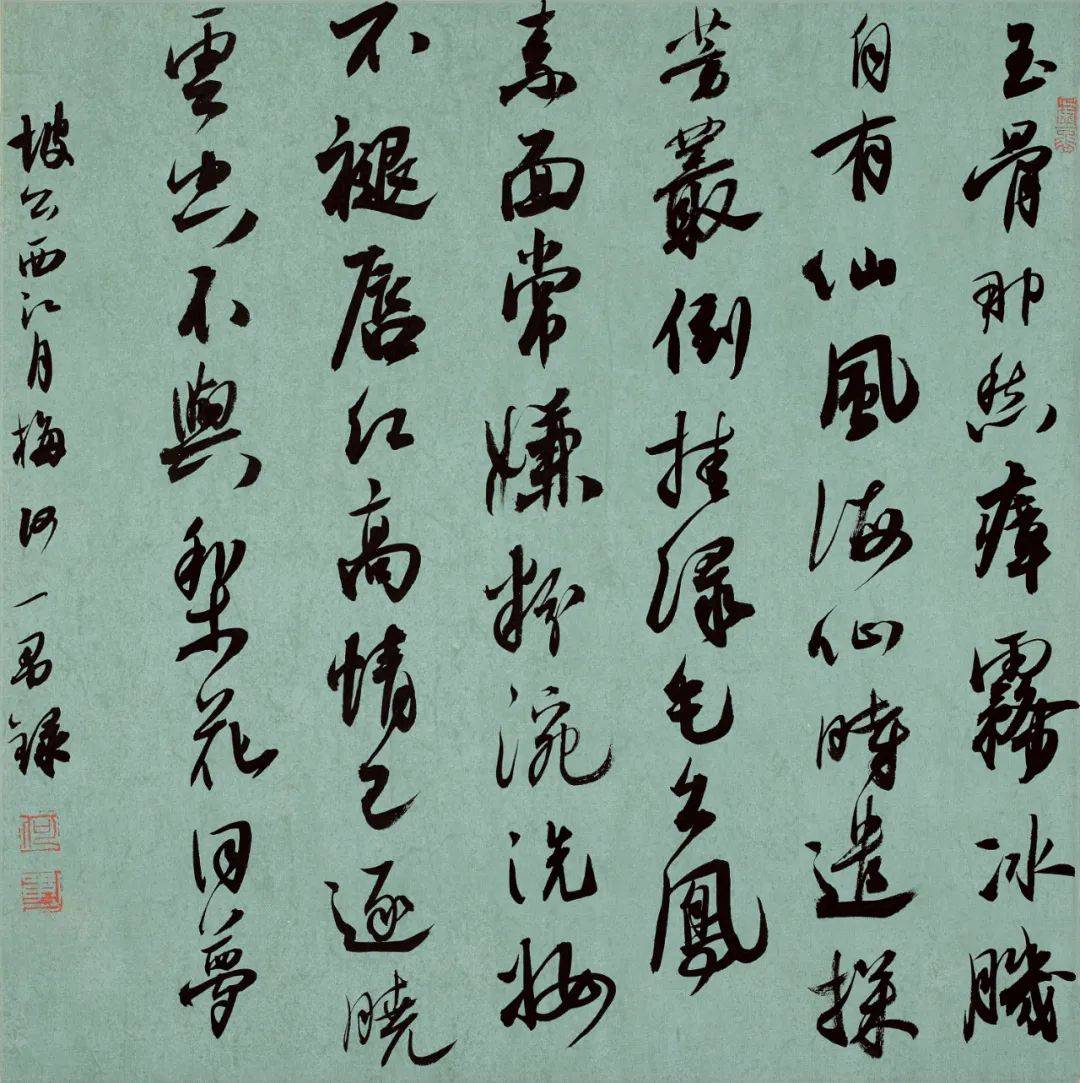 玉骨那愁瘴霧冰肌
自有仙風海仙時遣探
芳叢倒挂綠毛幺鳳
素面常嫌粉涴洗妝
不褪唇紅高情已逐曉
雲空不與梨花同夢
坡公西江月梅 何一錄